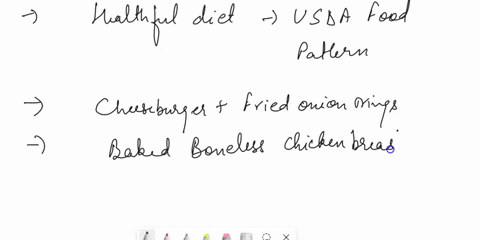 → Healthful diet → USDA Food
Pattern
→ Cheeseburger + Fried onion rings
→ Baked Boneless chicken breas